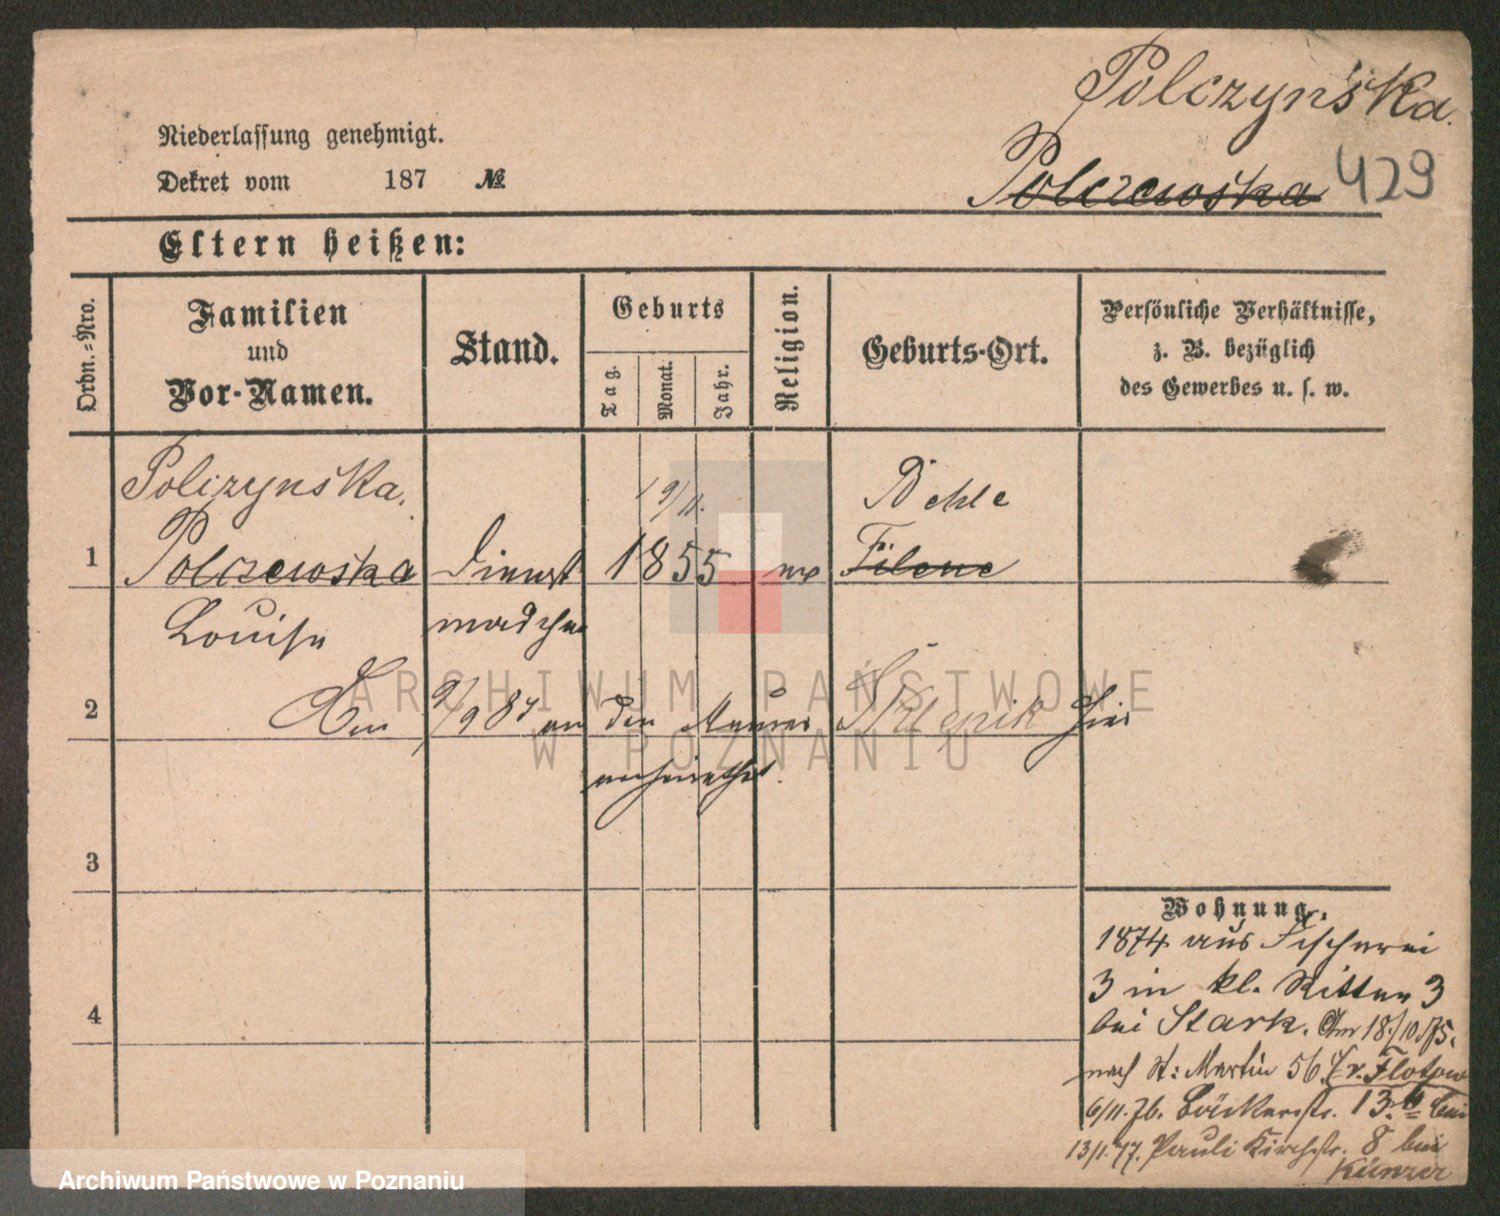 Polczynska.
Niederlassung genehmigt.
Dekret vom 187 №
Polczewska 429
Eltern heißen:
Ordn.-Nro.
Familien
und
Vor-Namen.
Stand.
Geburts
Tag.
Monat.
Jahr.
Religion.
Geburts-Ort.
Persönliche Verhältnisse,
z. B. bezüglich
des Gewerbes u. s. w.
Polczynska. 19/11. Behle
1 Polczewska Dienst 1855 Filene
Louise mädchen
2 Am 9/9 87 an den Maurer hier
verheirathet.
3
4
Wohnung.
1874 aus Fischerei
3 in kl. Ritter 3
bei Stark. Am 18/10 75.
nach St: Martin 56. Fr. v. Flotow
6/11. 76. Bäckerstr. 13.b bei
13/1. 77. Pauli Kirchstr. 8 bei
Künzer
ARCHIWUM PAŃSTWOWE
W POZNANIU
Archiwum Państwowe w Poznaniu